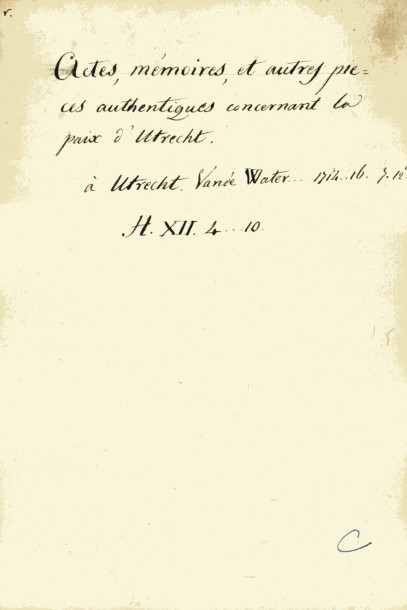 Actes, mémoires, et autres pie=
ces authentiques concernant la
paix d'Utrecht.
à Utrecht. Vande Water... 1714..16. 7. 12
H. XII. 4...10.
C